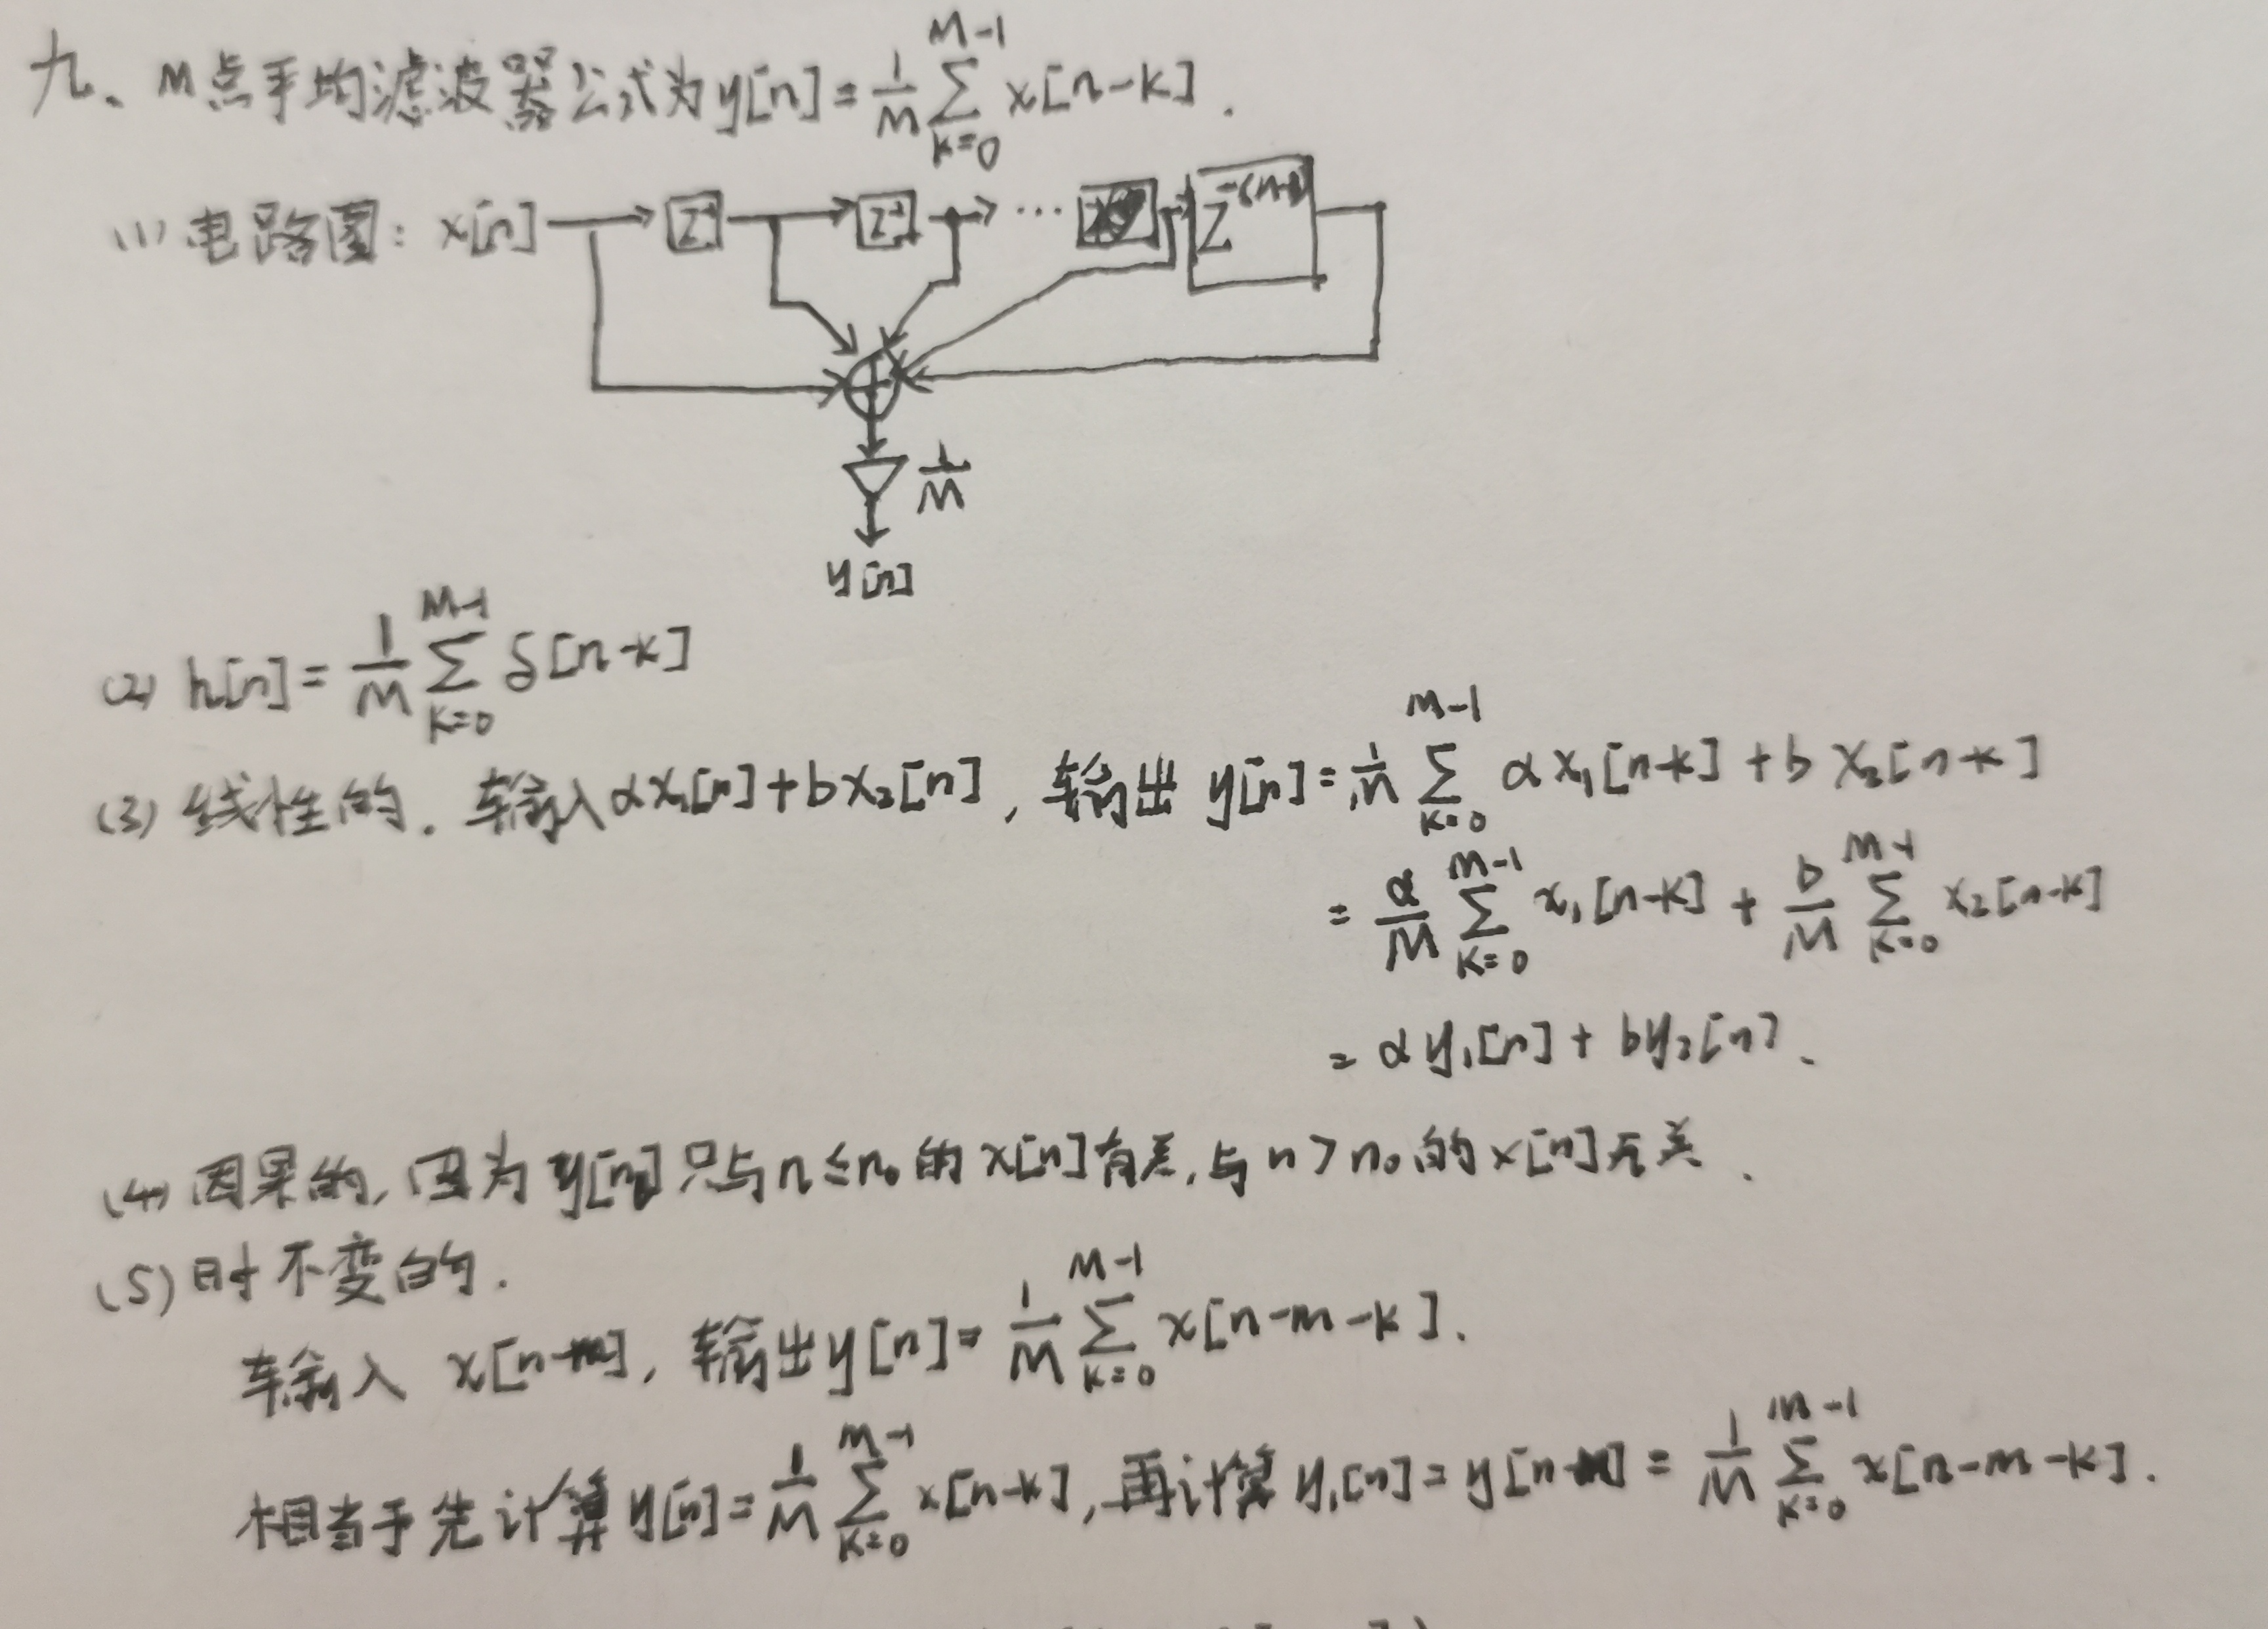 九、M点平均滤波器公式为y[n]=\frac{1}{M}\sum_{k=0}^{M-1}x[n-k].
(1)电路图: x[n] → Z^{-1} → Z^{-1} → ⋯
⊕
\frac{1}{M}
y[n]
(2) h[n]=\frac{1}{M}\sum_{k=0}^{M-1}δ[n-k]
(3) 线性的. 输入αx_1[n]+bx_2[n], 输出 y[n]=\frac{1}{M}\sum_{k=0}^{M-1}αx_1[n-k]+bx_2[n-k]
=\frac{α}{M}\sum_{k=0}^{M-1}x_1[n-k]+\frac{b}{M}\sum_{k=0}^{M-1}x_2[n-k]
=αy_1[n]+by_2[n].
(4) 因果的, 因为y[n_0]只与n≤n_0的x[n]有关,与n>n_0的x[n]无关.
(5) 时不变的.
输入 x[n-m], 输出y[n]=\frac{1}{M}\sum_{k=0}^{M-1}x[n-m-k].
相当于先计算y[n]=\frac{1}{M}\sum_{k=0}^{M-1}x[n-k],再计算y_1[n]=y[n-m]=\frac{1}{M}\sum_{k=0}^{M-1}x[n-m-k].